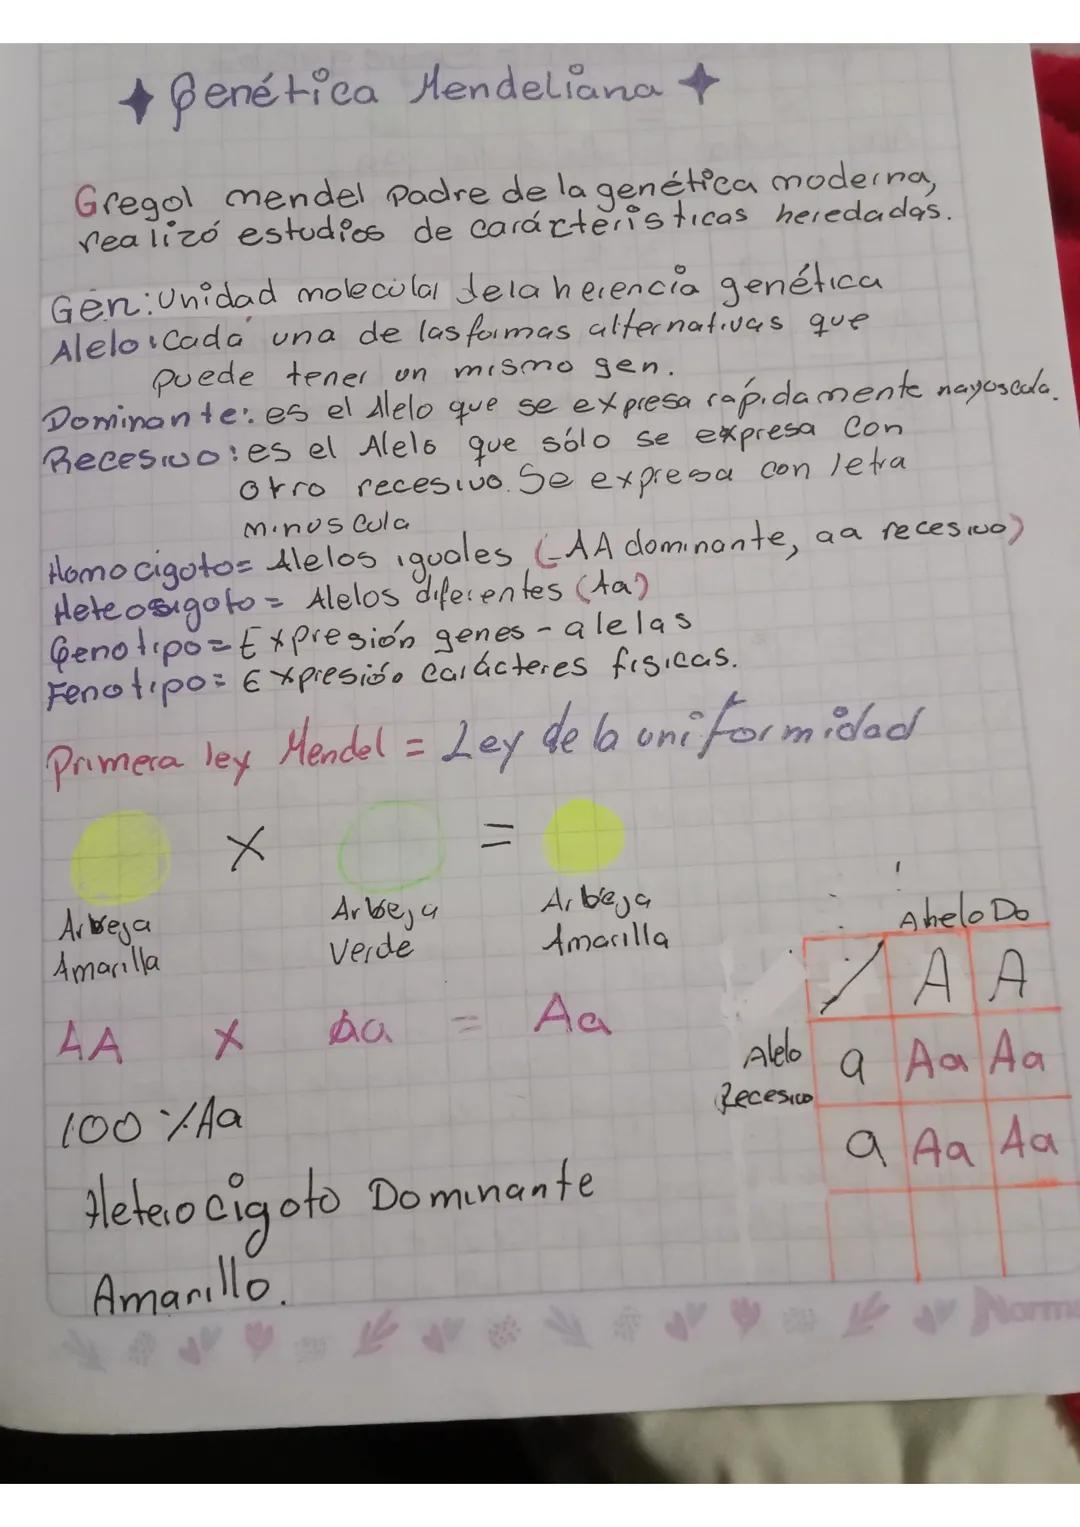 Genética Mendeliana
Gregol mendel Padre de la genética moderna,
realizó estudios de carácterísticas heredadas.
Gen: Unidad molecular de la herencia genética
Alelo: Cada una de las formas alternativas que
puede tener un mismo gen.
Dominante: es el Alelo que se expresa rápidamente mayoscula.
Recesivo: es el Alelo que sólo se expresa con
otro recesivo. Se expresa con letra
minuscula
Homocigoto= Alelos iguales (AA dominante, aa recesivo)
Heteosigoto= Alelos diferentes (Aa)
Genotipo= Expresión genes - alelas
Fenotipo= Expresión carácteres fisicas.
Primera ley Mendel = Ley de la uniformidad
X =
Arbeja Amarilla
Arbeja Verde
Arbeja Amarilla
AA X aa = Aa
100%Aa
Heterocigoto Dominante
Amarillo.
Ahelo Do
A A
Alelo Recesivo
a Aa Aa
a Aa Aa
Norma